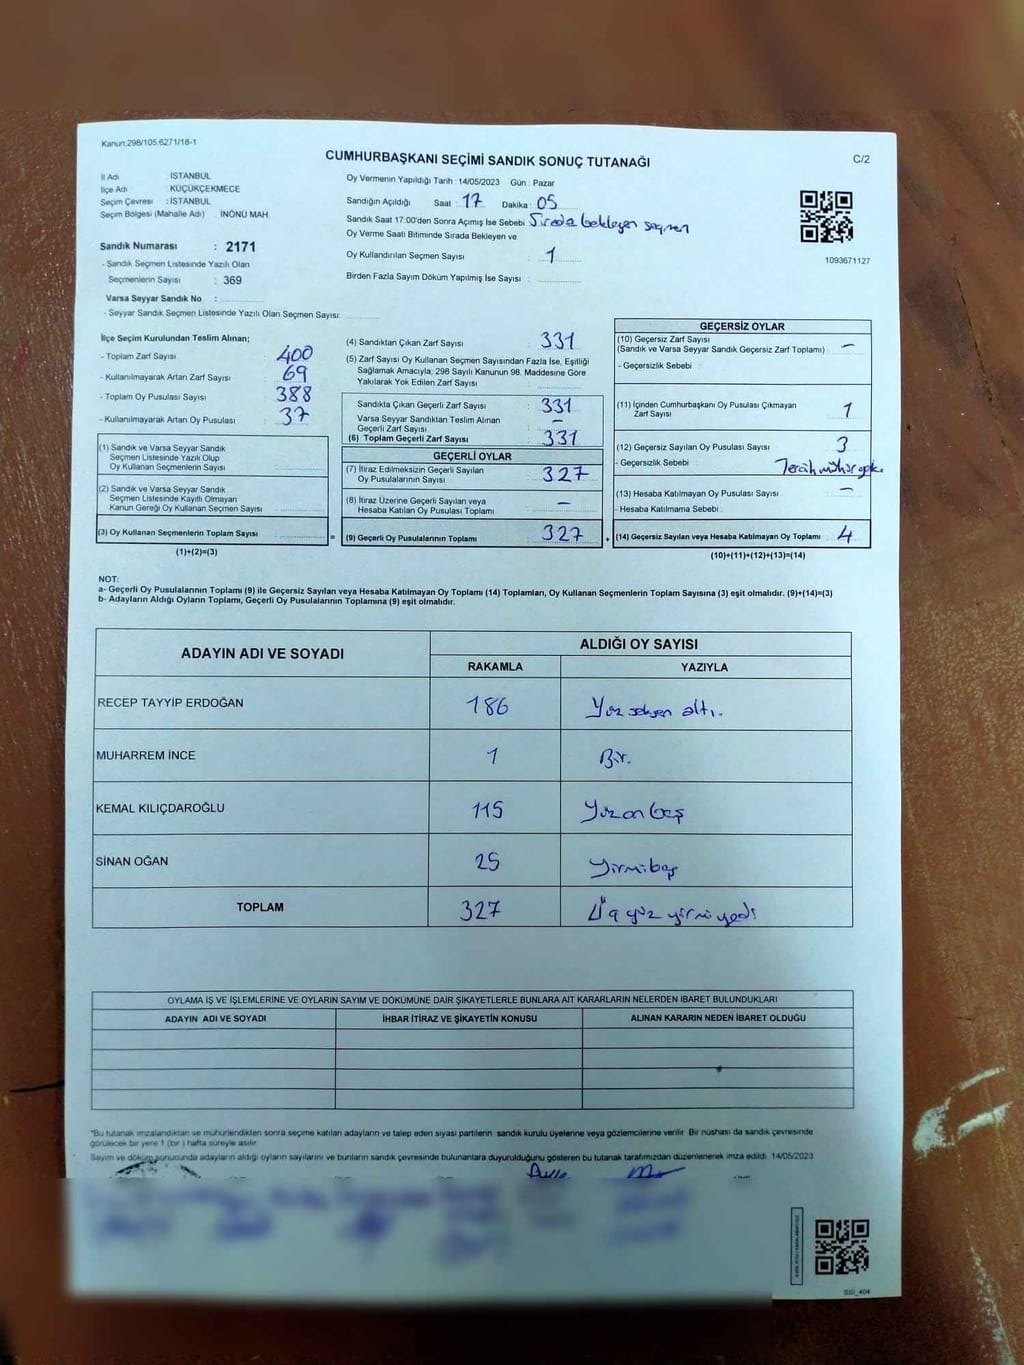 Kanun:298/105.6271/18-1
CUMHURBAŞKANI SEÇİMİ SANDIK SONUÇ TUTANAĞI
C/2
İl Adı İSTANBUL
İlçe Adı KÜÇÜKÇEKMECE
Seçim Çevresi : İSTANBUL
Seçim Bölgesi (Mahalle Adı) İNÖNÜ MAH.
Sandık Numarası : 2171
- Sandık Seçmen Listesinde Yazılı Olan
Seçmenlerin Sayısı : 369
Varsa Seyyar Sandık No :
- Seyyar Sandık Seçmen Listesinde Yazılı Olan Seçmen Sayısı:
Oy Vermenin Yapıldığı Tarih : 14/05/2023 Gün : Pazar
Sandığın Açıldığı Saat : 17 Dakika : 05
Sandık Saat 17:00'den Sonra Açımış İse Sebebi Sırada bekleyen seçmen
Oy Verme Saati Bitiminde Sırada Bekleyen ve
Oy Kullandırılan Seçmen Sayısı : 1
Birden Fazla Sayım Döküm Yapılmış İse Sayısı :
1093671127
İlçe Seçim Kurulundan Teslim Alınan;
- Toplam Zarf Sayısı 400
- Kullanılmayarak Artan Zarf Sayısı : 69
- Toplam Oy Pusulası Sayısı : 388
- Kullanılmayarak Artan Oy Pusulası : 37
(1) Sandık ve Varsa Seyyar Sandık
Seçmen Listesinde Yazılı Olup
Oy Kullanan Seçmenlerin Sayısı :
(2) Sandık ve Varsa Seyyar Sandık
Seçmen Listesinde Kayıtlı Olmayan
Kanun Gereği Oy Kullanan Seçmen Sayısı :
(3) Oy Kullanan Seçmenlerin Toplam Sayısı :
(1)+(2)=(3)
=
(4) Sandıktan Çıkan Zarf Sayısı : 331
(5) Zarf Sayısı Oy Kullanan Seçmen Sayısından Fazla İse, Eşitliği
Sağlamak Amacıyla; 298 Sayılı Kanunun 98. Maddesine Göre
Yakılarak Yok Edilen Zarf Sayısı :
Sandıkta Çıkan Geçerli Zarf Sayısı : 331
Varsa Seyyar Sandıktan Teslim Alınan
Geçerli Zarf Sayısı : -
(6) Toplam Geçerli Zarf Sayısı : 331
GEÇERLİ OYLAR
(7) İtiraz Edilmeksizin Geçerli Sayılan
Oy Pusulalarının Sayısı : 327
(8) İtiraz Üzerine Geçerli Sayılan veya
Hesaba Katılan Oy Pusulası Toplamı : -
(9) Geçerli Oy Pusulalarının Toplamı : 327
+
GEÇERSİZ OYLAR
(10) Geçersiz Zarf Sayısı
(Sandık ve Varsa Seyyar Sandık Geçersiz Zarf Toplamı) : -
- Geçersizlik Sebebi :
(11) İçinden Cumhurbaşkanı Oy Pusulası Çıkmayan
Zarf Sayısı : 1
(12) Geçersiz Sayılan Oy Pusulası Sayısı : 3
- Geçersizlik Sebebi :
(13) Hesaba Katılmayan Oy Pusulası Sayısı : -
- Hesaba Katılmama Sebebi :
(14) Geçersiz Sayılan veya Hesaba Katılmayan Oy Toplamı : 4
(10)+(11)+(12)+(13)=(14)
NOT:
a- Geçerli Oy Pusulalarının Toplamı (9) ile Geçersiz Sayılan veya Hesaba Katılmayan Oy Toplamı (14) Toplamları, Oy Kullanan Seçmenlerin Toplam Sayısına (3) eşit olmalıdır. (9)+(14)=(3)
b- Adayların Aldığı Oyların Toplamı, Geçerli Oy Pusulalarının Toplamına (9) eşit olmalıdır.
ADAYIN ADI VE SOYADI
ALDIĞI OY SAYISI
RAKAMLA YAZIYLA
RECEP TAYYİP ERDOĞAN 186 Yüz seksen altı.
MUHARREM İNCE 1 Bir.
KEMAL KILIÇDAROĞLU 115 Yüzon beş
SİNAN OĞAN 25 Yirmibeş
TOPLAM 327 Üç yüz yirmi yedi
OYLAMA İŞ VE İŞLEMLERİNE VE OYLARIN SAYIM VE DÖKÜMÜNE DAİR ŞİKAYETLERLE BUNLARA AİT KARARLARIN NELERDEN İBARET BULUNDUKLARI
ADAYIN ADI VE SOYADI İHBAR İTİRAZ VE ŞİKAYETİN KONUSU ALINAN KARARIN NEDEN İBARET OLDUĞU
*Bu tutanak imzalandıktan ve mühürlendikten sonra seçime katılan adayların ve talep eden siyasi partilerin sandık kurulu üyelerine veya gözlemcilerine verilir. Bir nüshası da sandık çevresinde
görülecek bir yere 1 (bir ) hafta süreyle asılır.
Sayım ve döküm sonucunda adayların aldığı oyların sayılarını ve bunların sandık çevresinde bulunanlara duyurulduğunu gösteren bu tutanak tarafımızdan düzenlenerek imza edildi. 14/05/2023
SSİ_404